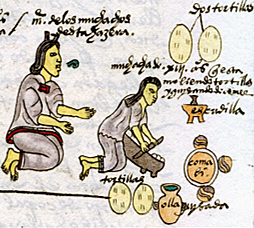 m. de los muchachos
desta hazera.
dos tortillas
muchacha de xiiiᵒ aᵒs q̃ esta
moliendo tortillas
y guisando de comer
escudilla
comal
tortillas
olla guisada